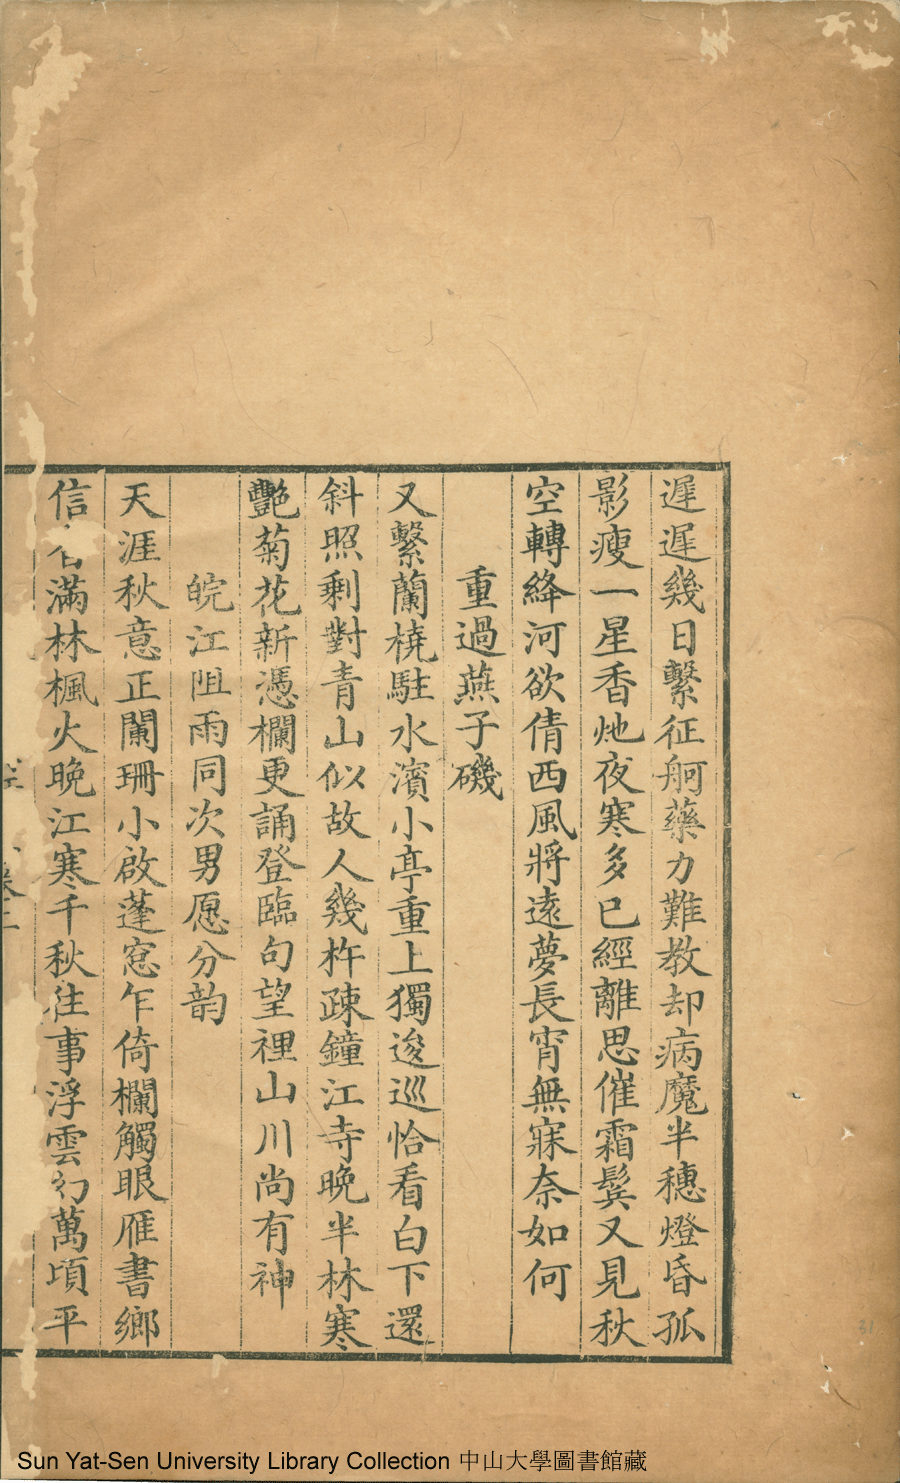 遲遲幾日繫征舸藥力難教却病魔半穗燈昏孤
影瘦一星香灺夜寒多已經離思催霜鬂又見秋
空轉絳河欲倩西風將遠夢長宵無寐奈如何
重過燕子磯
又繫蘭橈駐水濱小亭重上獨逡巡恰看白下還
斜照剩對青山似故人幾杵疎鐘江寺晚半林寒
艷菊花新憑欄更誦登臨句望裡山川尚有神
皖江阻雨同次男愿分韵
天涯秋意正闌珊小啟蓬窓乍倚欄觸眼雁書鄉
信滿林楓火晚江寒千秋往事浮雲幻萬頃平
卷二
Sun Yat-Sen University Library Collection 中山大學圖書館藏
31